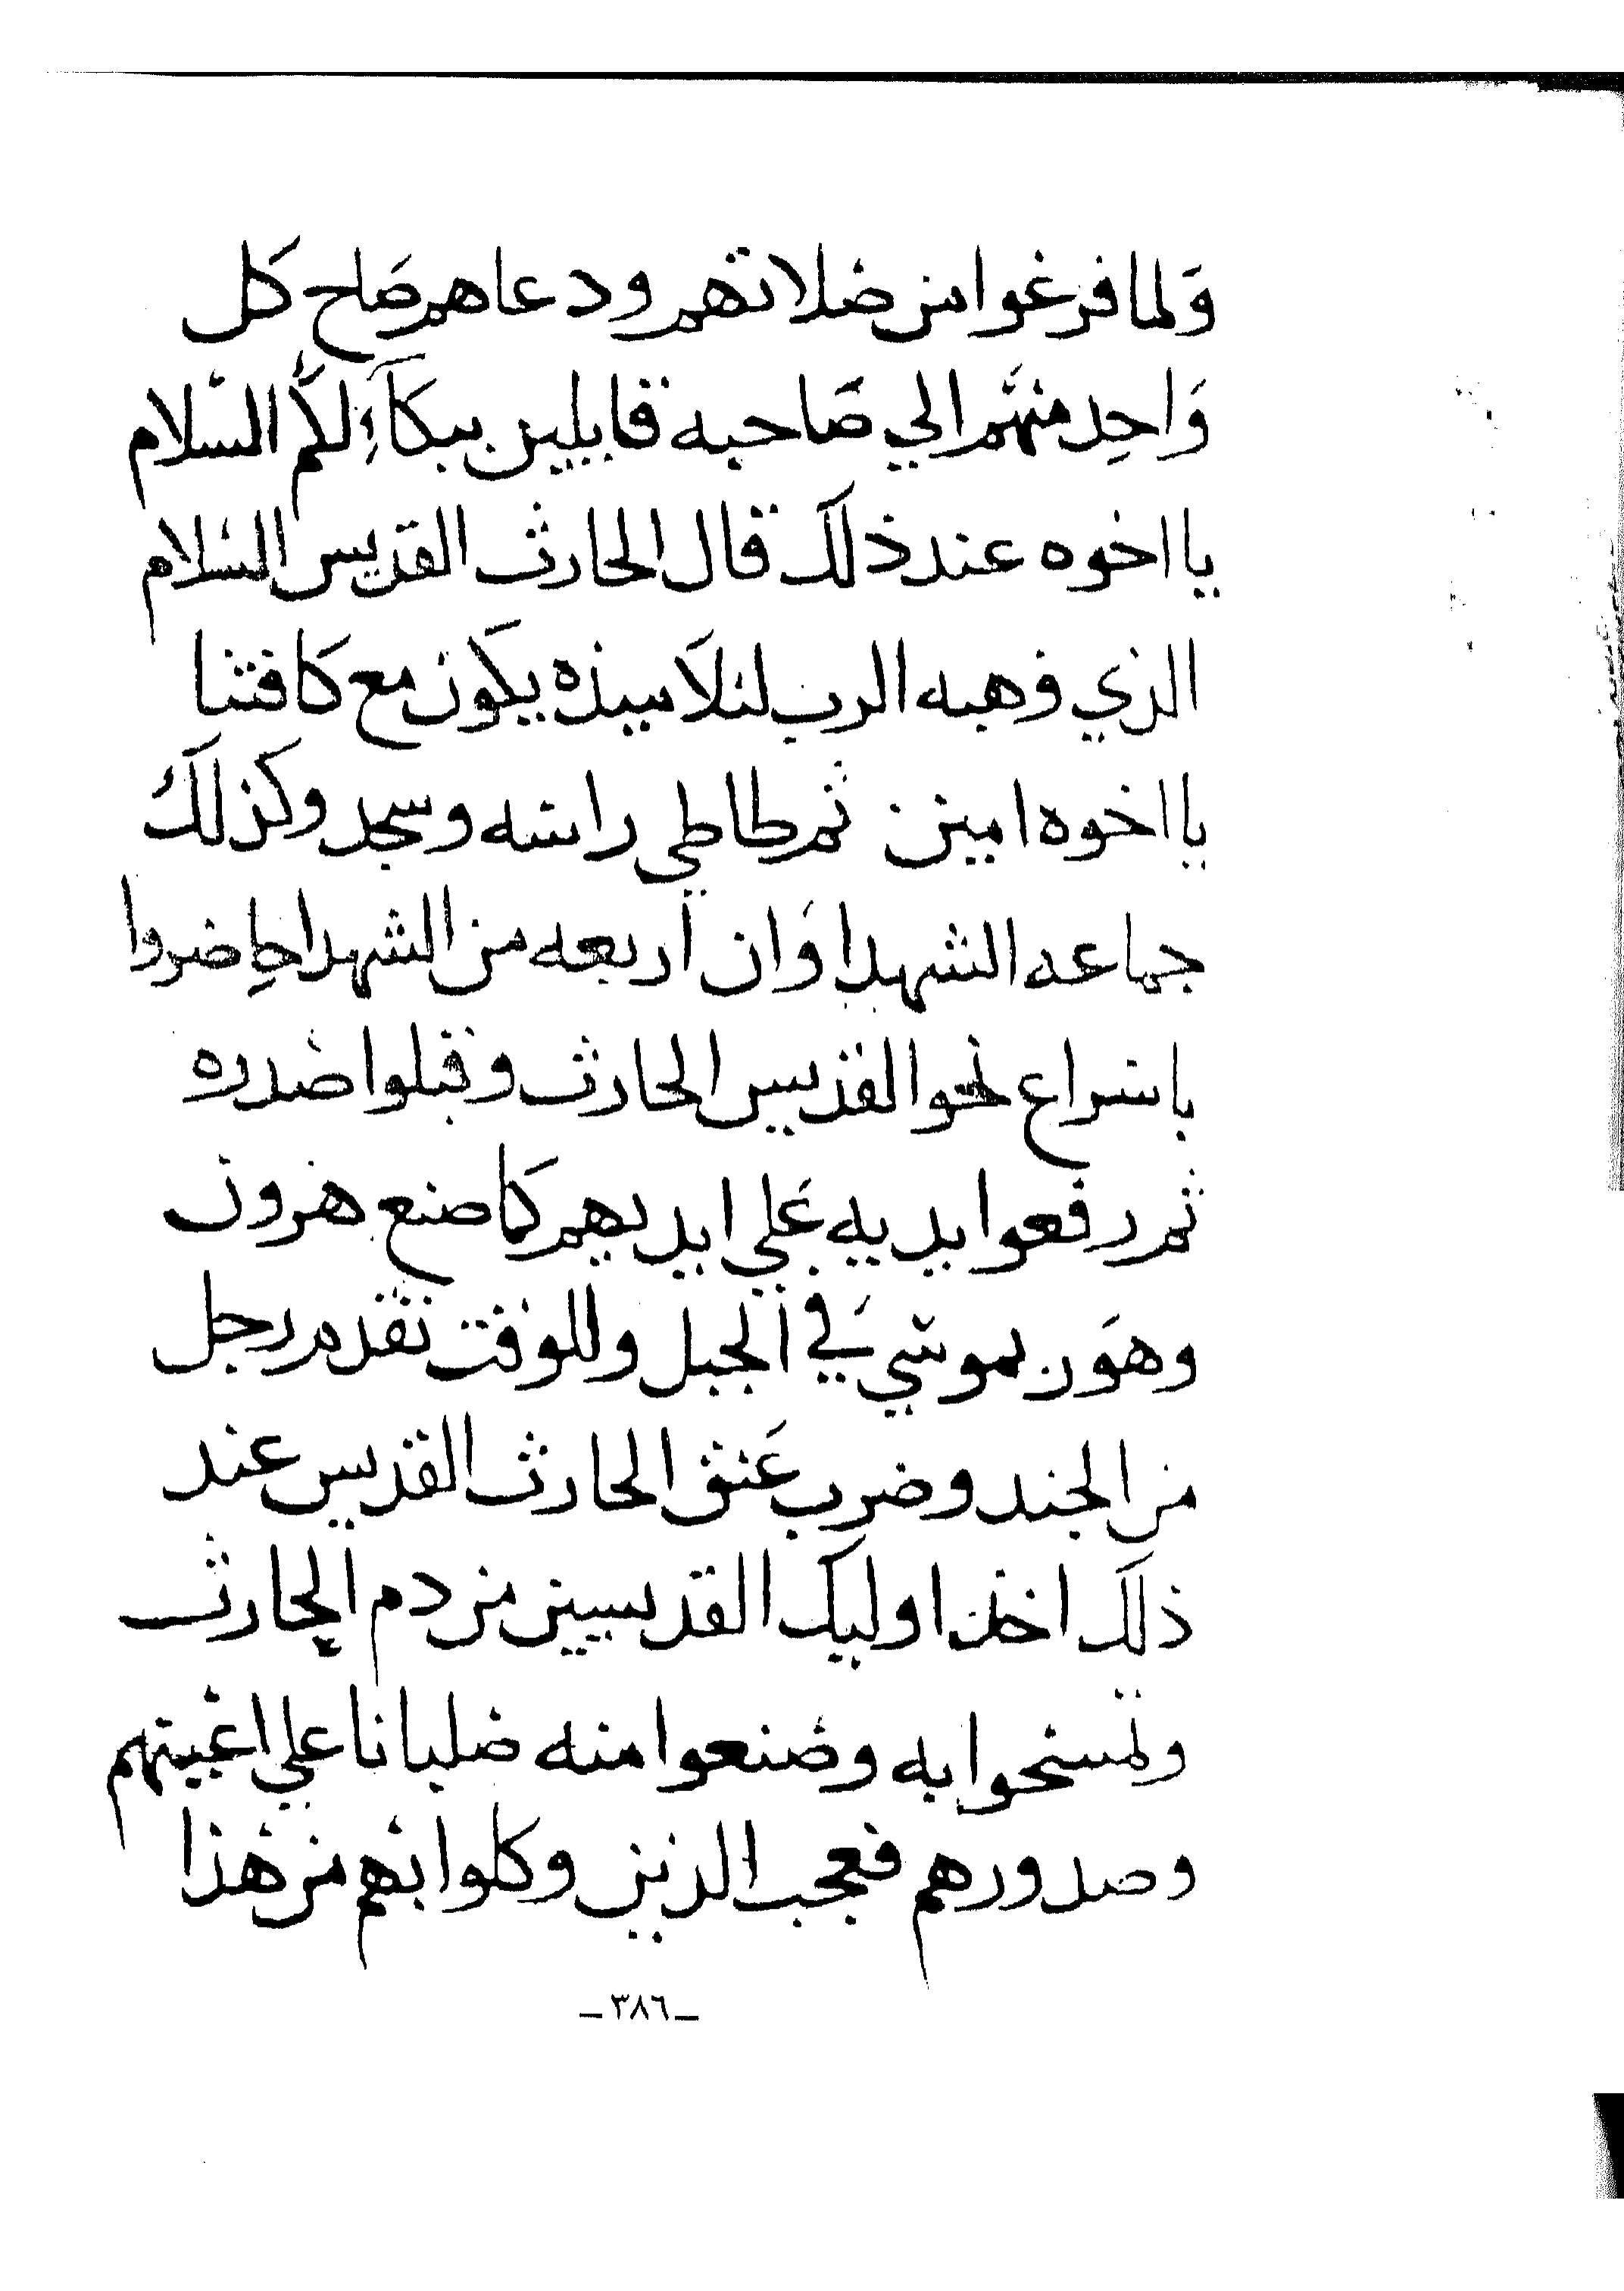 ولما فرغوا من صلاتهم ودعاهم صاح كل
واحد منهم الي صاحبه قايلين ببكاء لكم السلام
يا اخوه عند ذلك قال الحارث القديس السلام
الذي وهبه الرب لتلاميذه يكون مع كافتنا
يا اخوه امين ثم طاطي راسه وسجد وكذلك
جماعه الشهدا وان اربعه من الشهدا حاضروا
باسراع نحو القديس الحارث وقبلوا صدره
ثم رفعوا يديه علي ايديهم كما صنع هرون
وهون بموسي في الجبل وللوقت تقدم رجل
من الجند وضرب عنق الحارث القديس عند
ذلك اخذ اوليك القديسين من دم الحارث
وتمسحوا به وصنعوا منه صلبانا علي اعينهم
وصدورهم فعجب الذين وكلوا بهم من هذا
ـ٣٨٦ـ